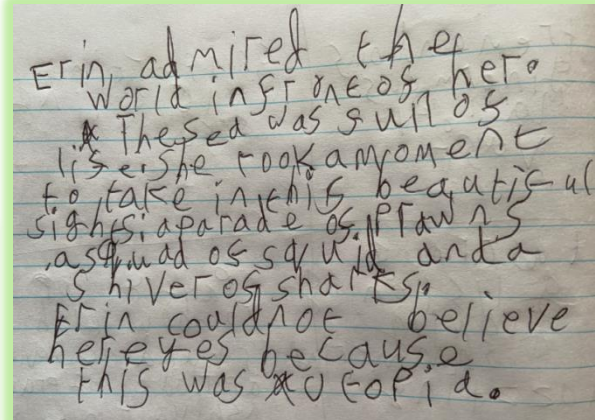 Erin, admired the
world infront of her.
The sea was full of
life. she took a moment
to take in this beautiful
sights: a parade of prawns
, a squad of squid and a
shiver of sharks.
Erin could not believe
her eyes because
this was a utopia.